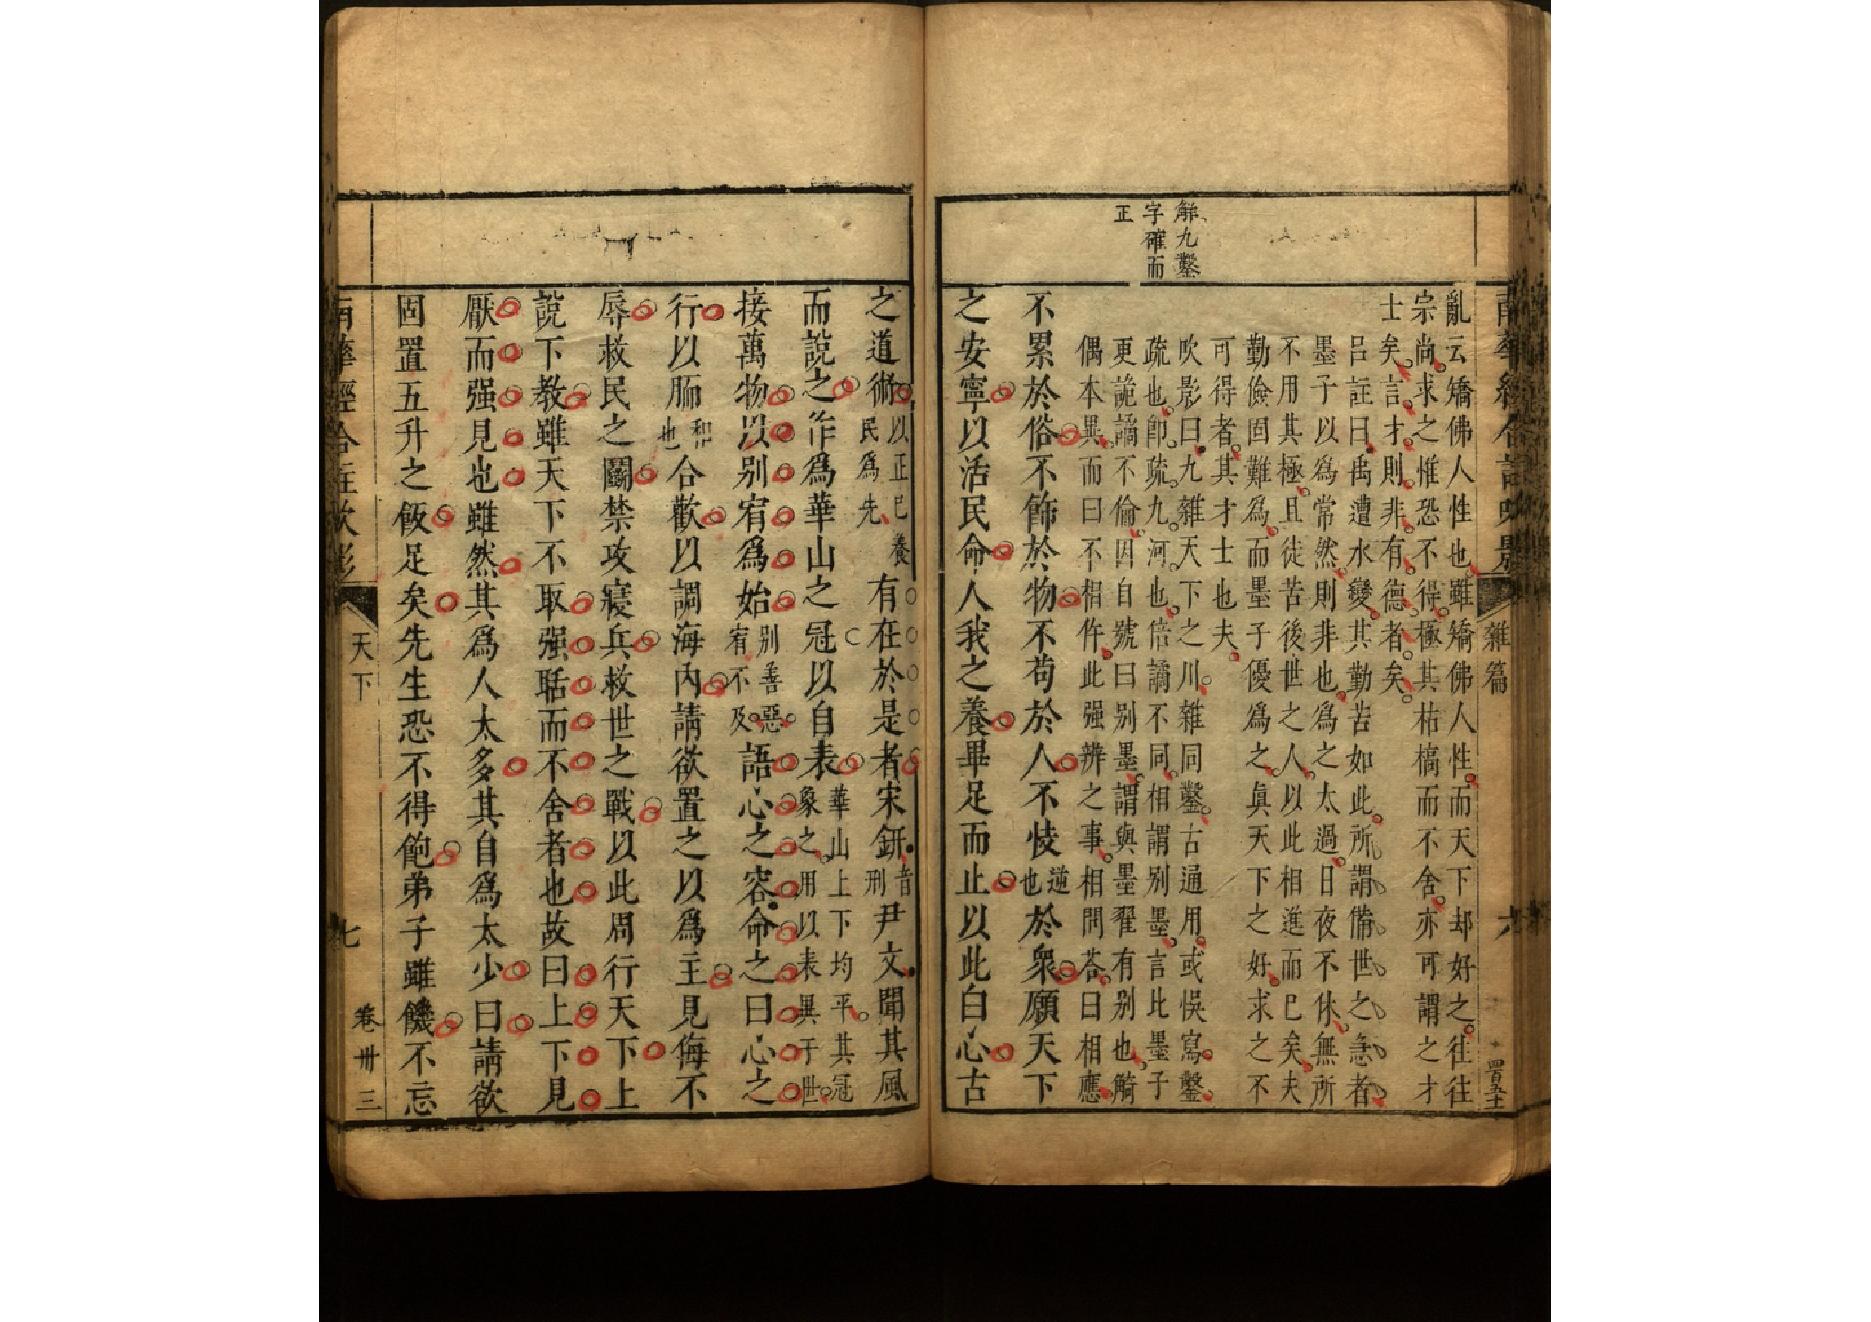 南華經合註吹影
雜篇
六
解九鑿
字確而
正
亂云矯佛人性也雖矯佛人性而天下却好之往往
宗尚求之惟恐不得極其枯槁而不舍亦可謂之才
士矣言才則非有德者矣
呂註曰禹遭水變其勤苦如此所謂備世之急者
墨子以為常然則非也為之太過日夜不休無所
不用其極且徒苦後世之人以此相進而已矣夫
勤儉固難為而墨子優為之眞天下之好求之不
可得者其才士也夫
吹影曰九雜天下之川雜同鑿古通用或悞寫鑿
疏也卽疏九河也倍譎不同相謂別墨言比墨子
更詭譎不倫因自號曰別墨謂與墨翟有別也觭
偶本異而曰不相仵此强辨之事相問荅曰相應
不累於俗不飾於物不苟於人不忮逆也於衆願天下
之安寧以活民命人我之養畢足而止以此白心古
之道術以正已民為先養有在於是者宋鈃音刑尹文聞其風
而說之作爲華山之冠以自表華山上下均平其冠象之用以表異于世
接萬物以別宥爲始別善惡宥不及語心之容命之曰心之
行以胹和也合歡以調海內請欲置之以爲主見侮不
辱救民之鬭禁攻寢兵救世之戰以此周行天下上
說下教雖天下不取强聒而不舍者也故曰上下見
厭而强見也雖然其爲人太多其自爲太少曰請欲
固置五升之飯足矣先生恐不得飽弟子雖饑不忘
南華經合註吹影
天下
七
卷卅三